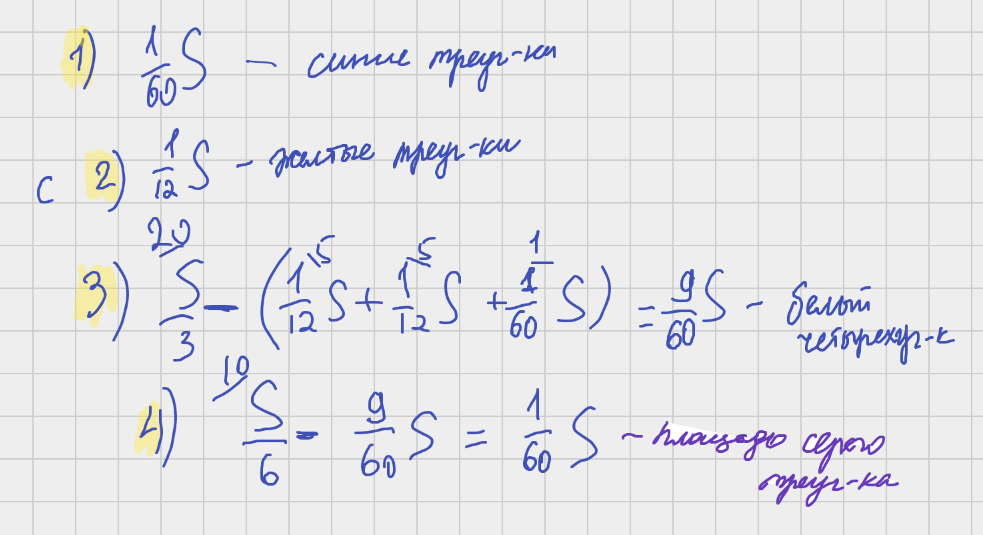 1) 1/60 S — синие треуг-ки
с 2) 1/12 S - желтые треуг-ки
3) S/3 \20 - (1/12 \5 S + 1/12 \5 S + 1/60 \1 S) = 9/60 S - белый четырехуг-к
4) S/6 \10 - 9/60 S = 1/60 S - площадь серого треуг-ка